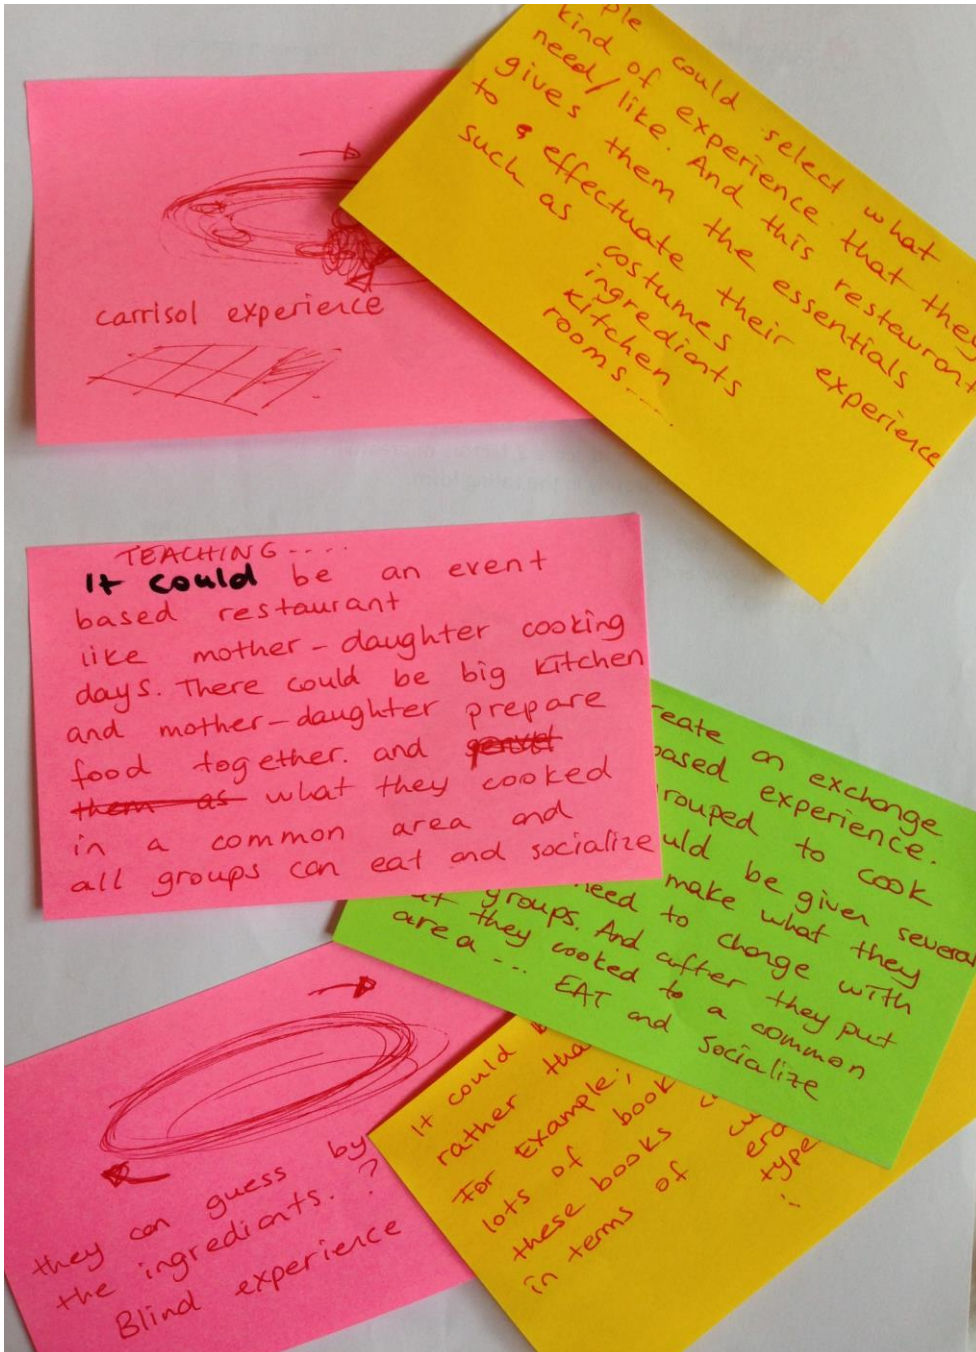 carrisol experience
ple could select what
kind of experience that they
need/like. And this restaurant
gives them the essentials
to effectuate their experience
such as costumes
ingrediants
kitchen
rooms....
TEACHING ....
It could be an event
based restaurant
like mother-daughter cooking
days. There could be big kitchen
and mother-daughter prepare
food together. and
them as what they cooked
in a common area and
all groups can eat and socialize
reate an exchange
based experience.
rouped to cook
uld be given several
make what they
need to change with
groups. And after they put
at they cooked to a common
area... EAT and socialize
they can guess by
the ingrediants. ?
Blind experience
It could
rather tha
For Example;
lots of book
these books
in terms of
era
type